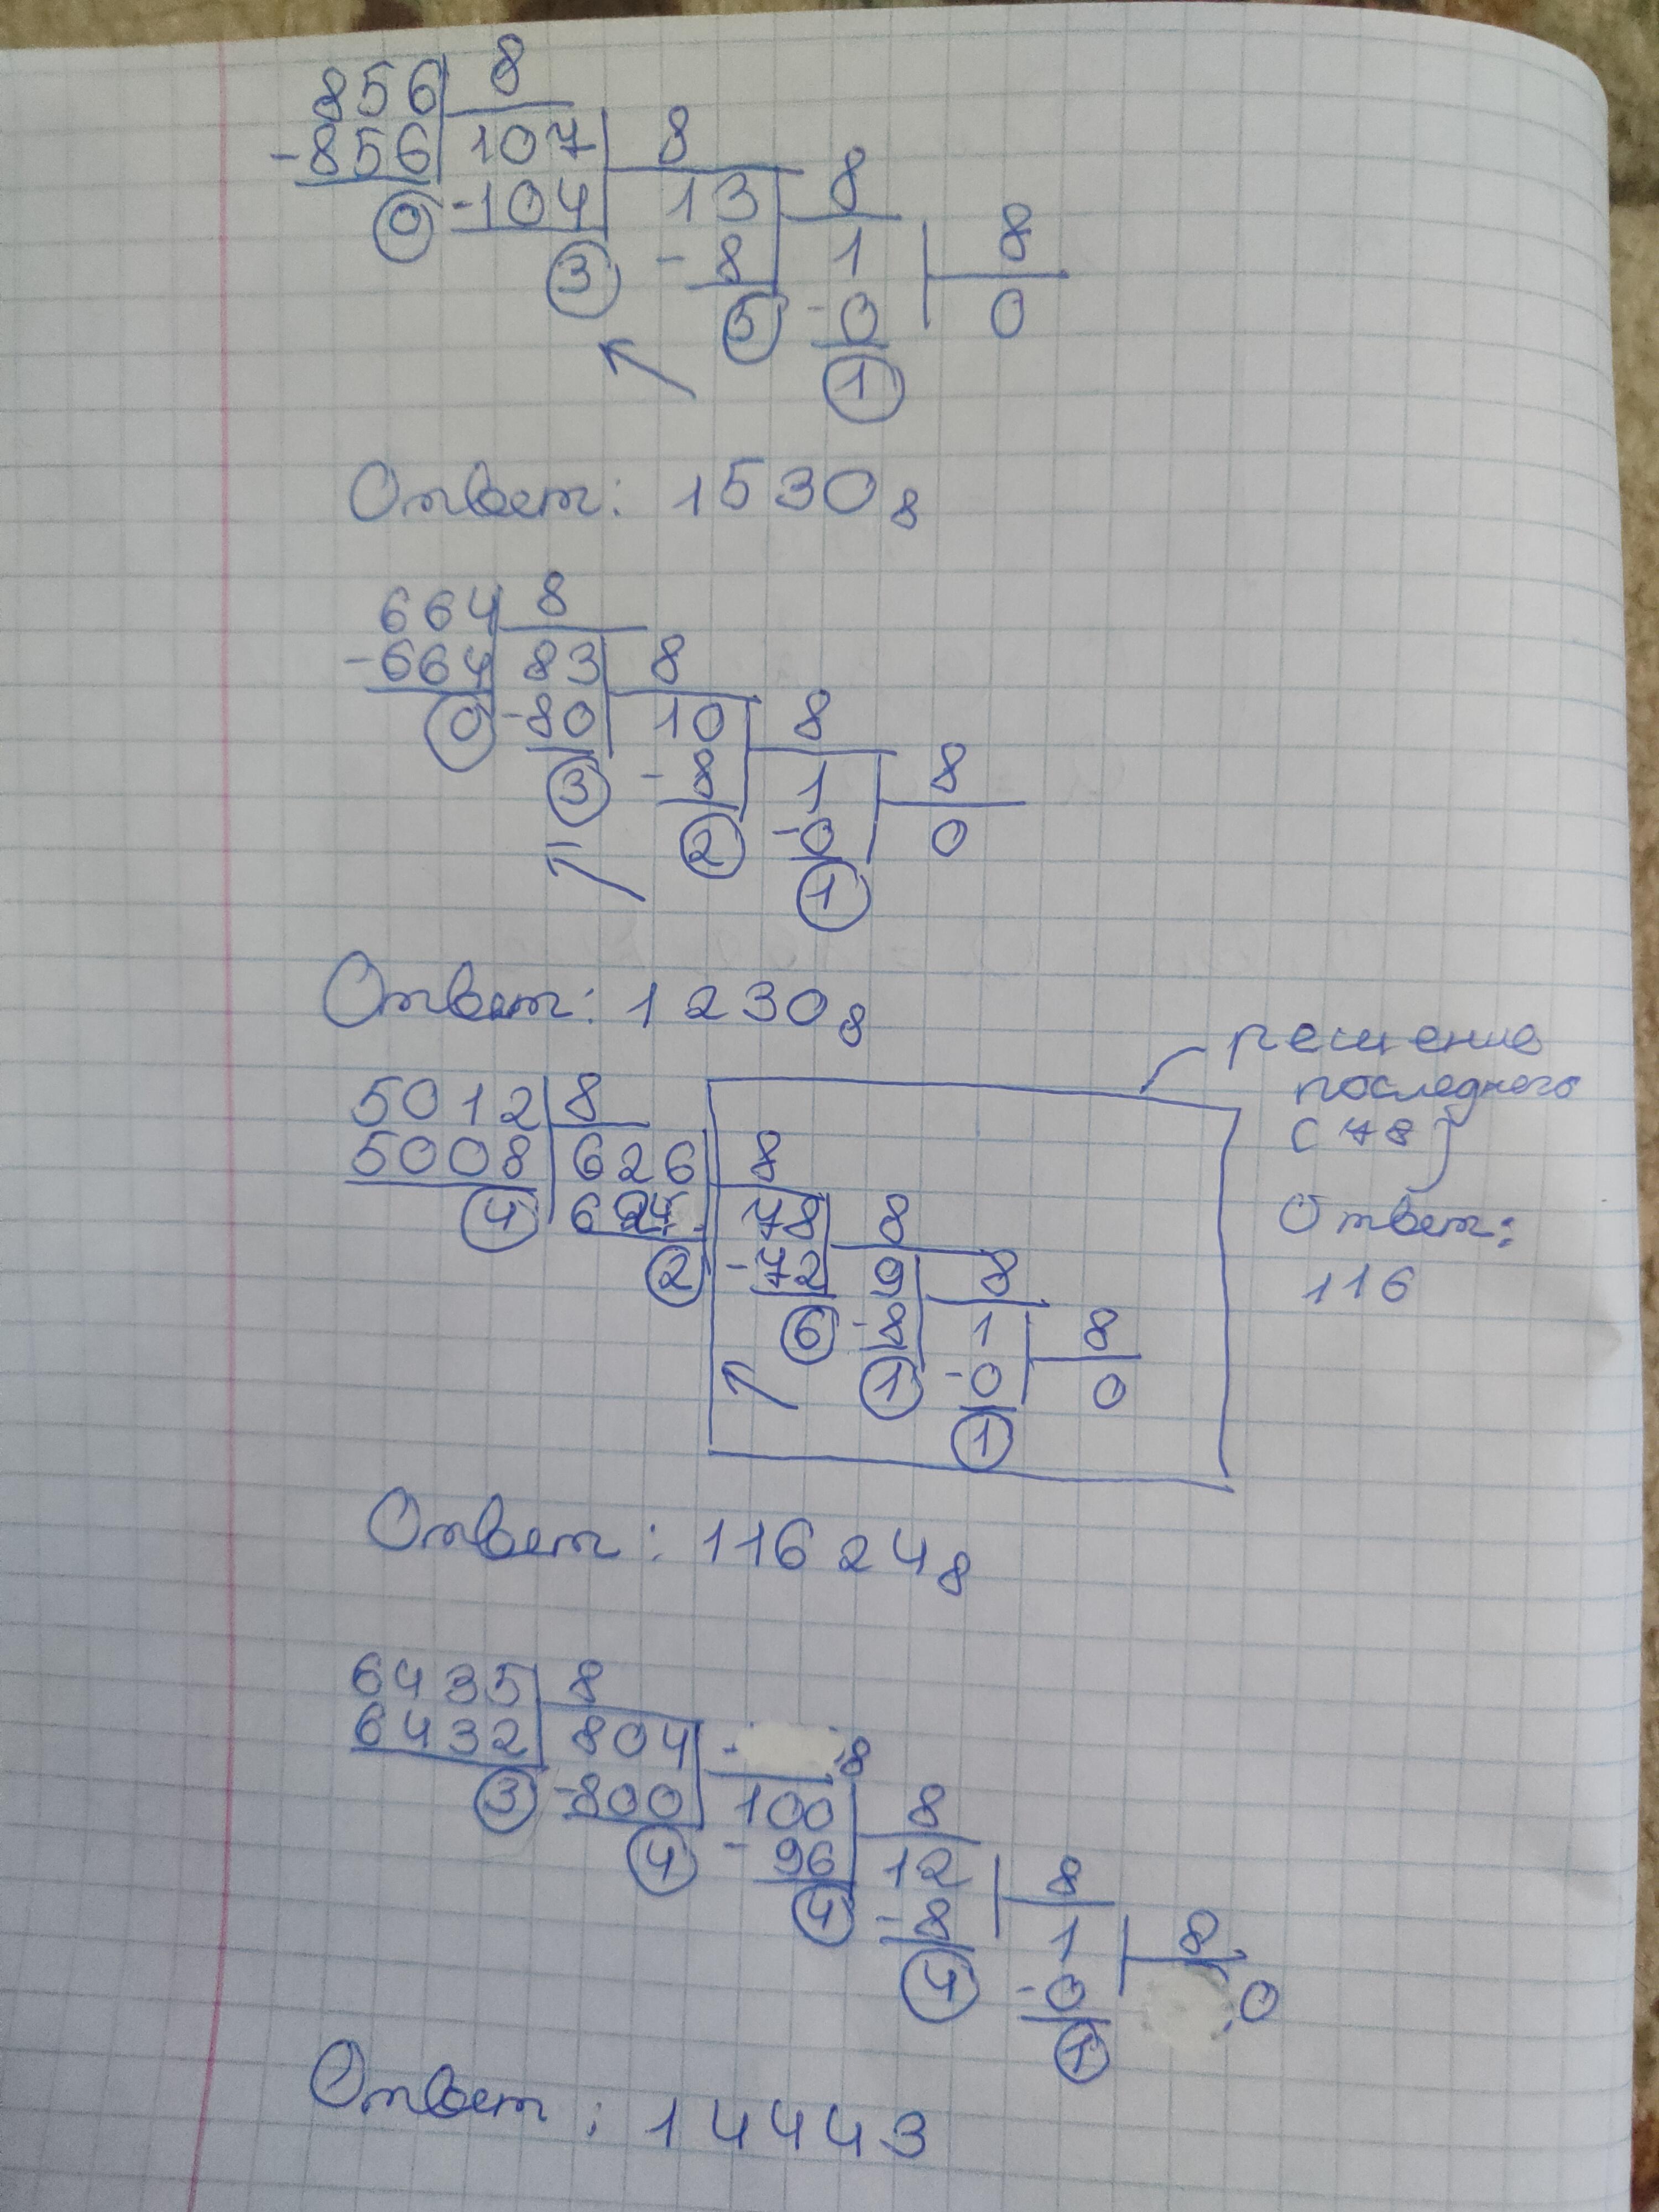 856 8
-856 107 8
0 -104 13 8
3 -8 1 8
5 -0 0
1
Ответ: 1530₈
664 8
-664 83 8
0 -80 10 8
3 -8 1 8
2 -0 0
1
Ответ: 1230₈
решение
последнего
с 78
Ответ:
116
5012 8
5008 626 8
4 624 78 8
2 -72 9 8
6 -8 1 8
1 -0 0
1
Ответ: 11624₈
6435 8
6432 804 - 8
3 -800 100 8
4 -96 12 8
4 -8 1 8
4 -0 0
1
Ответ: 14443